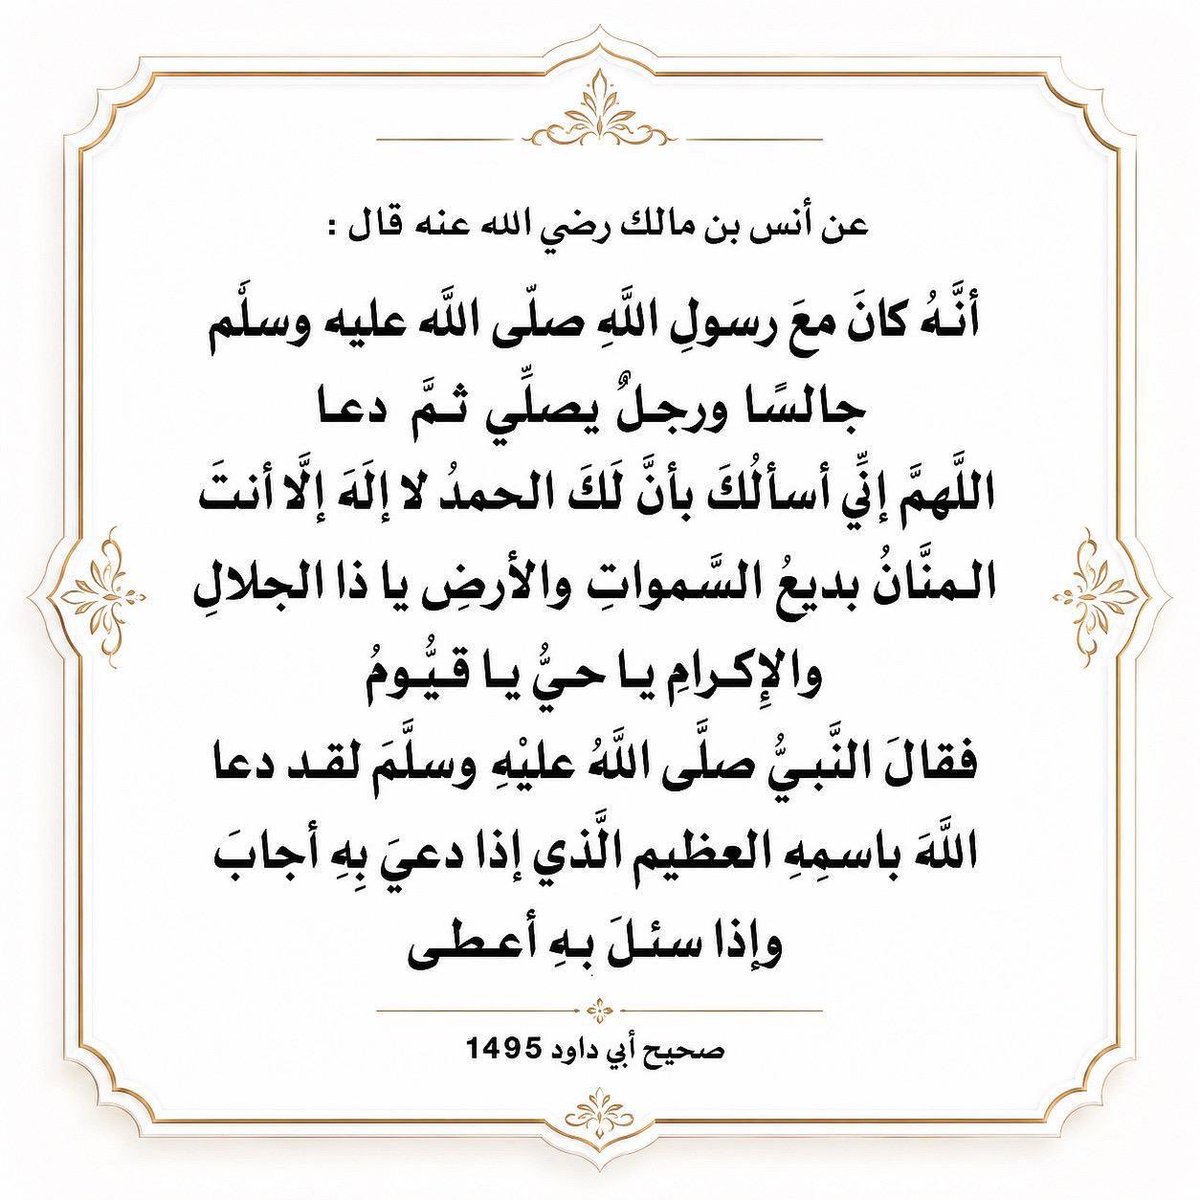 عن أنس بن مالك رضي الله عنه قال :
أنَّهُ كانَ معَ رسولِ اللَّهِ صلّى اللَّه عليه وسلَّم
جالسًا ورجلٌ يصلِّي ثمَّ دعا
اللَّهمَّ إنِّي أسألُكَ بأنَّ لَكَ الحمدُ لا إلَهَ إلَّا أنتَ
المنَّانُ بديعُ السَّمواتِ والأرضِ يا ذا الجلالِ
والإِكرامِ يا حيُّ يا قيُّومُ
فقالَ النَّبيُّ صلَّى اللَّهُ عليْهِ وسلَّمَ لقد دعا
اللَّهَ باسمِهِ العظيم الَّذي إذا دعيَ بِهِ أجابَ
وإذا سئلَ بهِ أعطى
صحيح أبي داود 1495